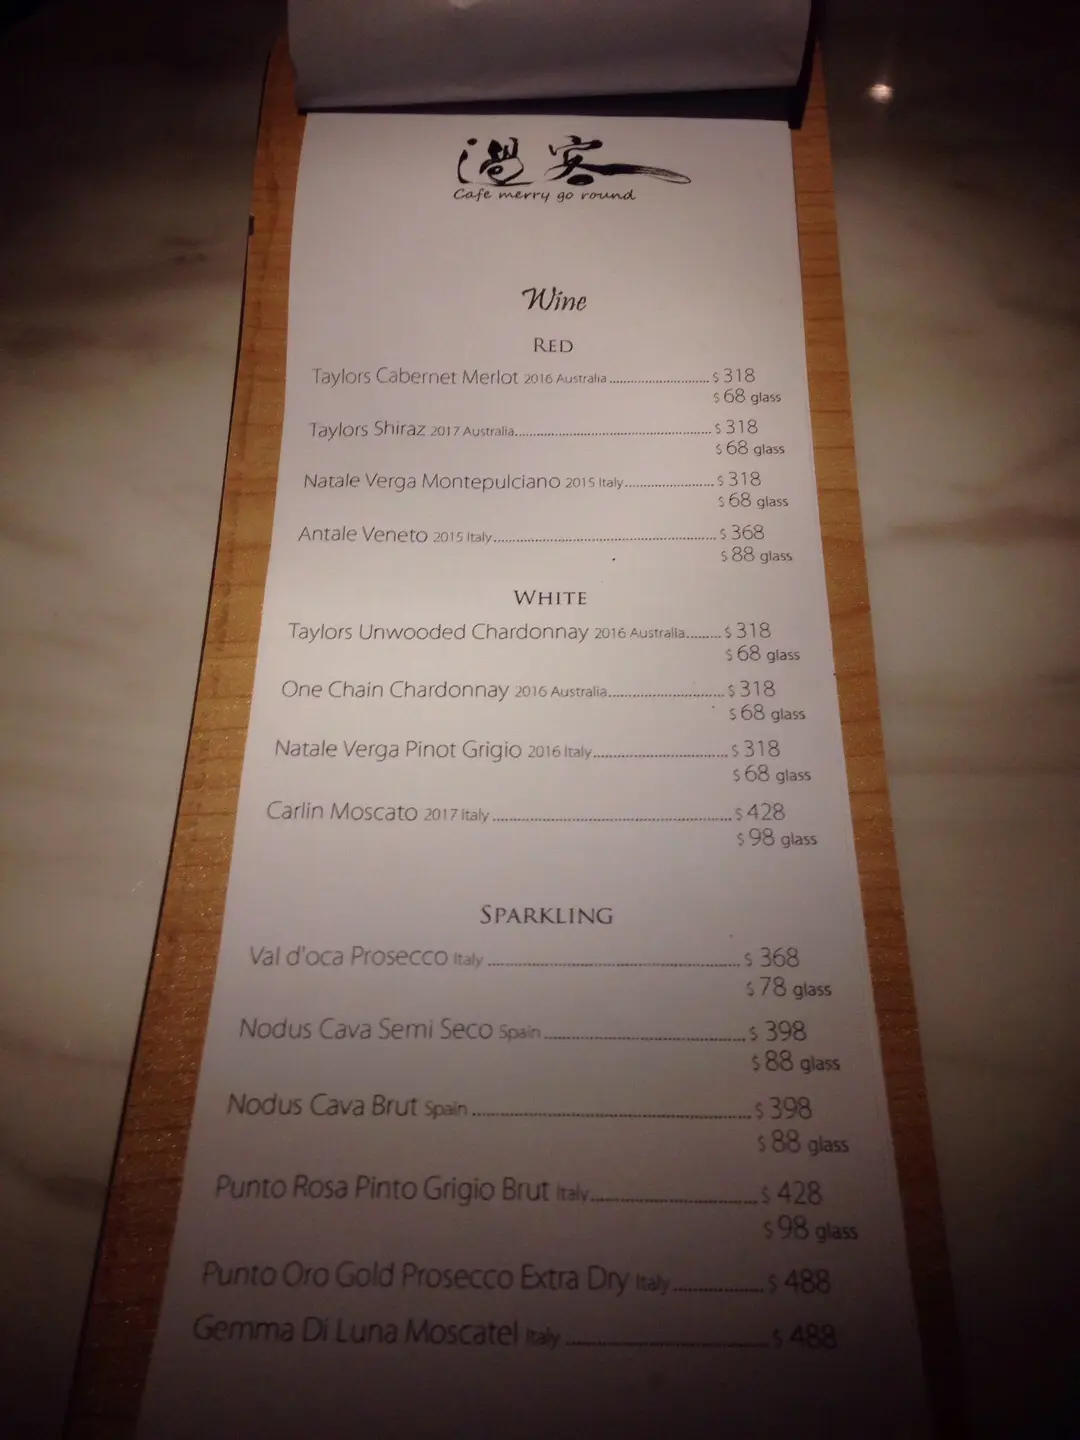 過客
Cafe merry go round
Wine
RED
Taylors Cabernet Merlot 2016 Australia ........................... $ 318
$ 68 glass
Taylors Shiraz 2017 Australia..................................................... $ 318
$ 68 glass
Natale Verga Montepulciano 2015 Italy........................ $ 318
$ 68 glass
Antale Veneto 2015 Italy............................................................ $ 368
$ 88 glass
WHITE
Taylors Unwooded Chardonnay 2016 Australia......... $ 318
$ 68 glass
One Chain Chardonnay 2016 Australia.............................. $ 318
$ 68 glass
Natale Verga Pinot Grigio 2016 Italy.................................. $ 318
$ 68 glass
Carlin Moscato 2017 Italy ............................................................ $ 428
$ 98 glass
SPARKLING
Val d'oca Prosecco Italy ............................................................ $ 368
$ 78 glass
Nodus Cava Semi Seco Spain .............................................. $ 398
$ 88 glass
Nodus Cava Brut Spain ............................................................ $ 398
$ 88 glass
Punto Rosa Pinto Grigio Brut Italy.................................... $ 428
$ 98 glass
Punto Oro Gold Prosecco Extra Dry Italy .................. $ 488
Gemma Di Luna Moscatel Italy ...................................... $ 488